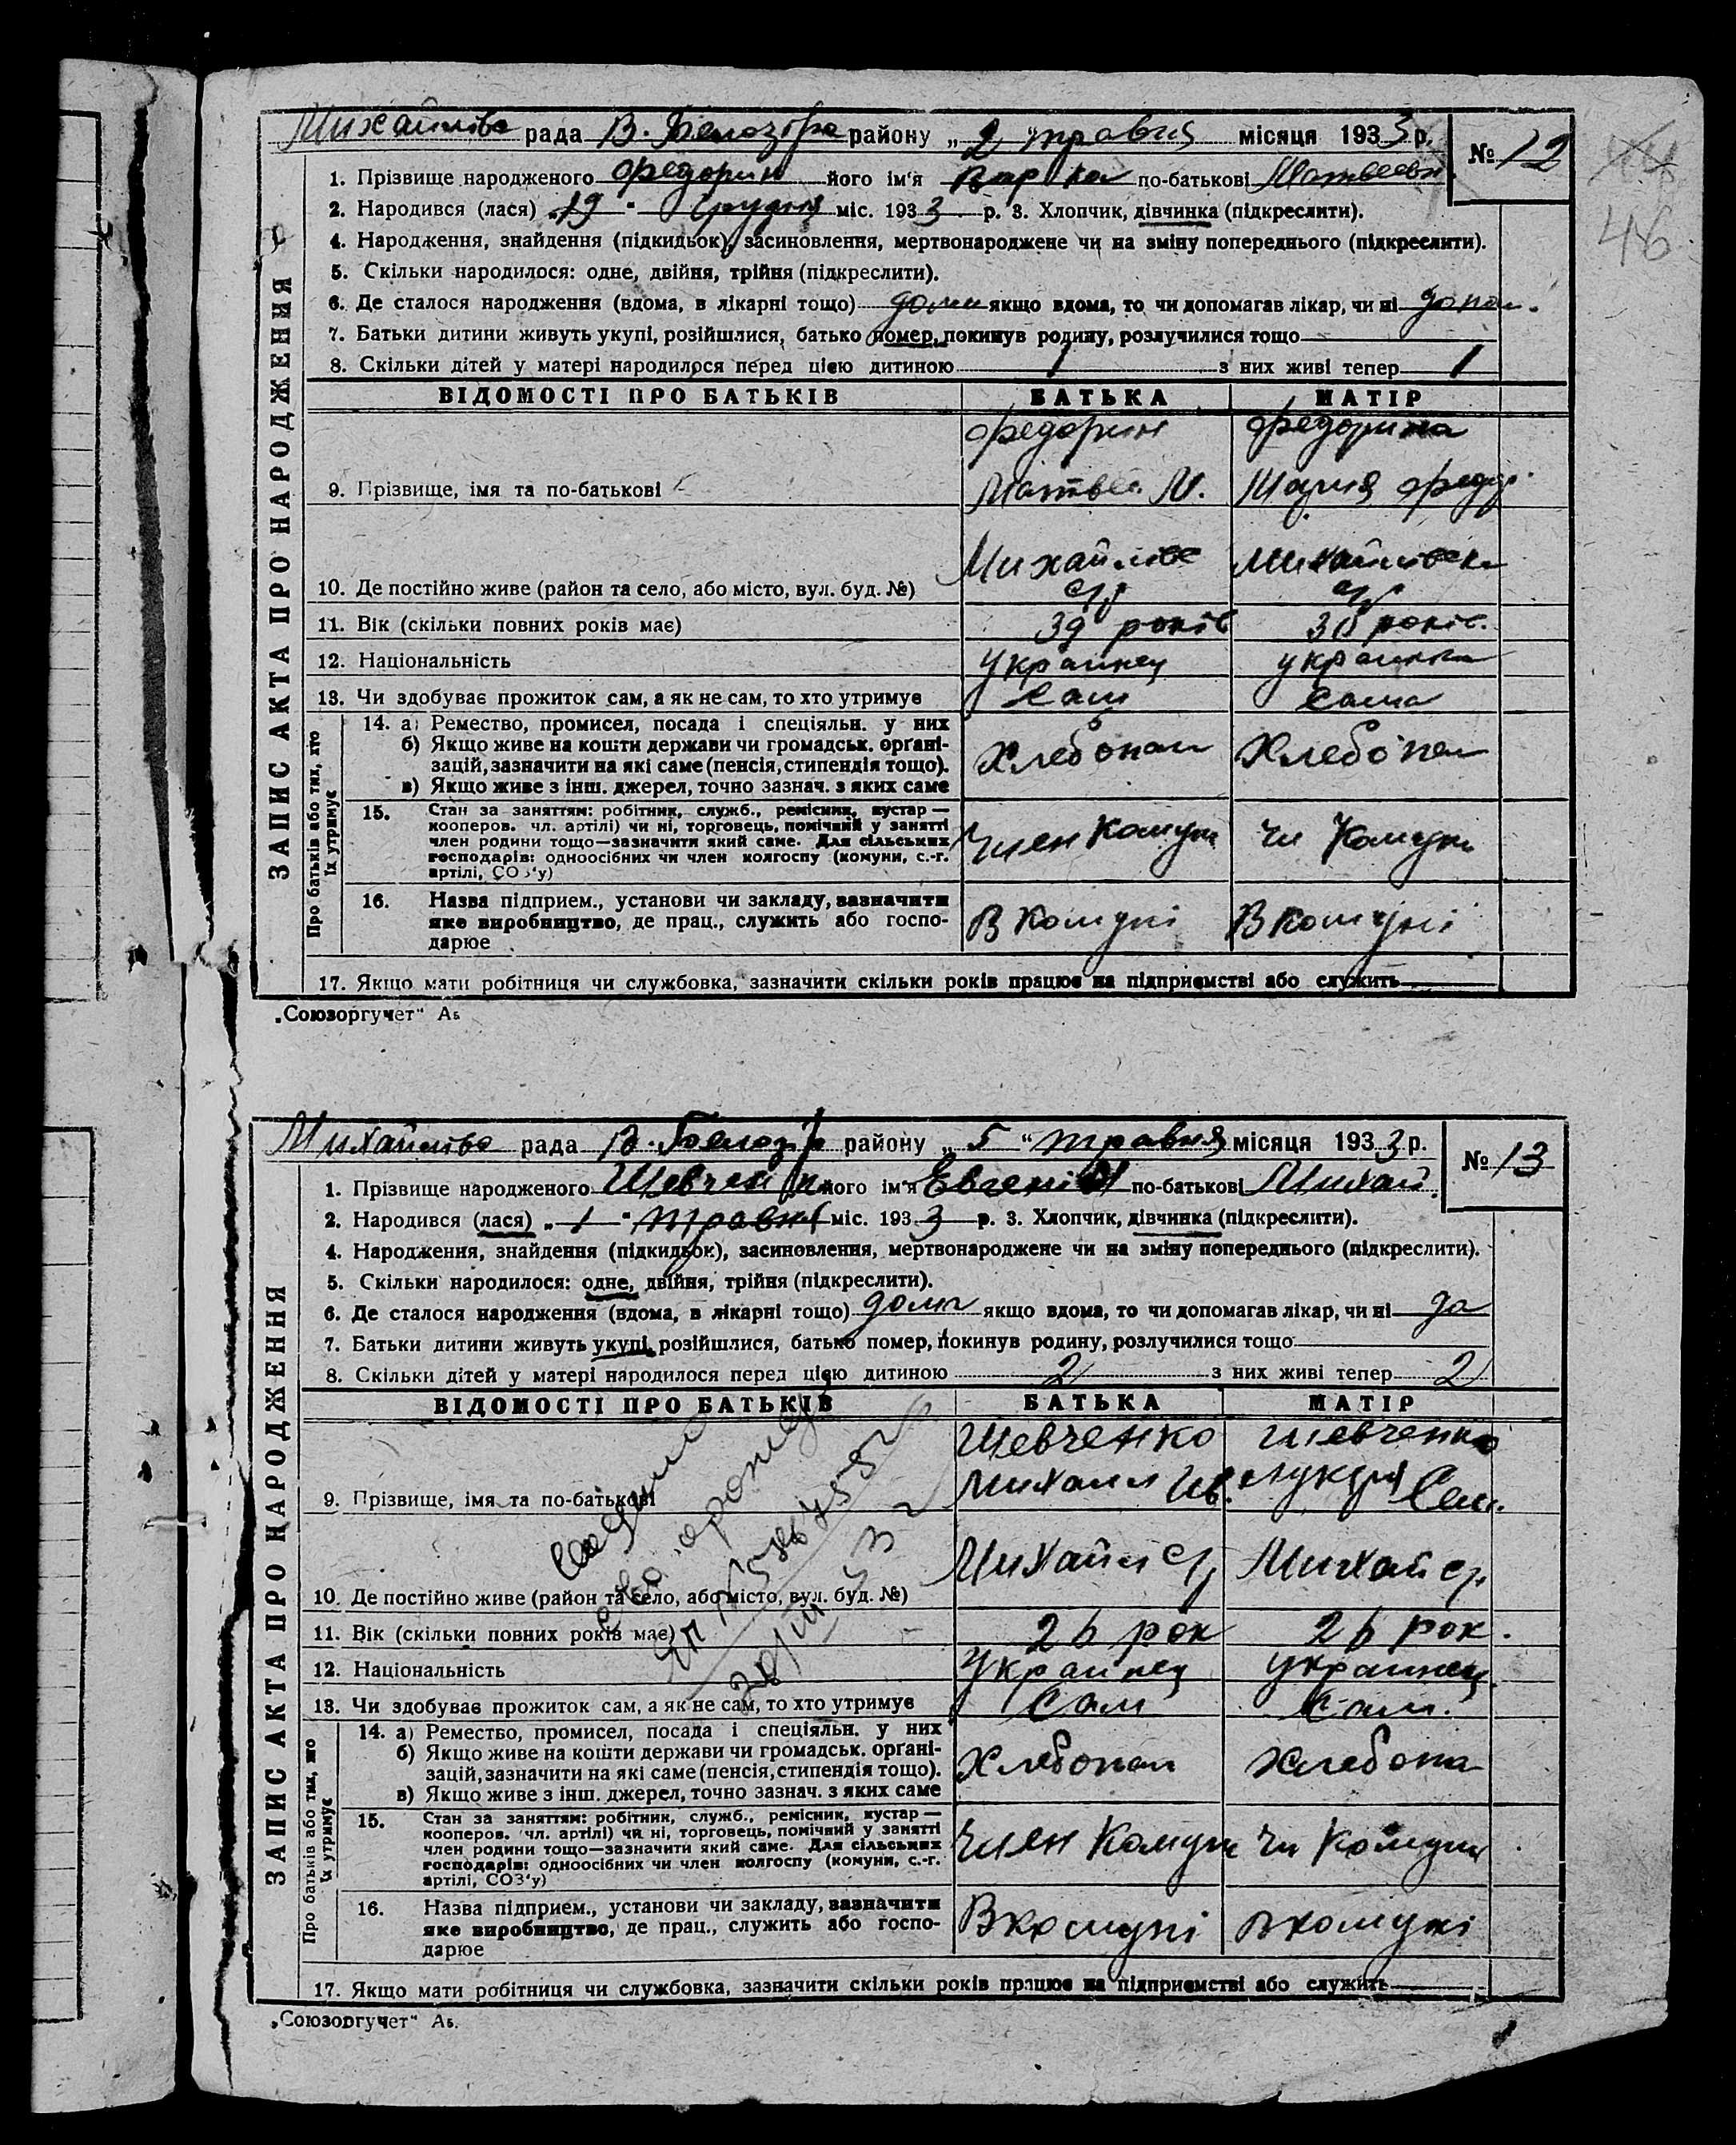 Михайлівс рада В. Белозірс району „ 2 “ травня місяця 1933 р. № 12
46
1. Прізвище народженого Федорин його ім'я Варка по-батькові Матвеевн.
2. Народився (лася) „ 19 “ грудня міс. 1933 р. 3. Хлопчик, дівчинка (підкреслити).
4. Народження, знайдення (підкидьок), засиновлення, мертвонароджене чи на зміну попереднього (підкреслити).
5. Скільки народилося: одне, двійня, трійня (підкреслити).
6. Де сталося народження (вдома, в лікарні тощо) дома якщо вдома, то чи допомагав лікар, чи ні допом.
7. Батьки дитини живуть укупі, розійшлися, батько помер, покинув родину, розлучилися тощо
8. Скільки дітей у матері народилося перед цією дитиною 1 з них живі тепер 1
ЗАПИС АКТА ПРО НАРОДЖЕННЯ
ВІДОМОСТІ ПРО БАТЬКІВ БАТЬКА МАТІР
Федорин Федорина
9. Прізвище, імя та по-батькові Матвей М. Мария Федор.
Михайлівс Михайлівск
10. Де постійно живе (район та село, або місто, вул. буд. №) ср ср
11. Вік (скільки повних років має) 39 років років.
12. Національність Украинец украинка
13. Чи здобуває прожиток сам, а як не сам, то хто утримує Сам Сама
Про батьків або тих, хто їх утримує
14. а) Ремество, промисел, посада і спеціяльн. у них
б) Якщо живе на кошти держави чи громадськ. орґані-
зацій, зазначити на які саме (пенсія, стипендія тощо). Хлебопаш Хлебопаш
в) Якщо живе з інш. джерел, точно зазнач. з яких саме
15. Стан за заняттям: робітник, служб., ремісник, кустар —
кооперов. чл. артілі) чи ні, торговець, помічний у занятті
член родини тощо—зазначити який саме. Для сільських Член Комуни Чл Комуни
господарів: одноосібних чи член колгоспу (комуни, с.-г.
артілі, СОЗ'у)
16. Назва підприєм., установи чи закладу, зазначити
яке виробництво, де прац., служить або госпо- В Комуні В комуні
дарює
17. Якщо мати робітниця чи службовка, зазначити скільки років працює на підприємстві або служить
„Союзоргучет“ Аб
Михайлівс рада В. Белозір району „ 5 “ травня місяця 1933 р. № 13
1. Прізвище народженого Шевченк його ім'я Евгенія по-батькові Михай.
2. Народився (лася) „ 1 “ травня міс. 1933 р. 3. Хлопчик, дівчинка (підкреслити).
4. Народження, знайдення (підкидьок), засиновлення, мертвонароджене чи на зміну попереднього (підкреслити).
5. Скільки народилося: одне, двійня, трійня (підкреслити).
6. Де сталося народження (вдома, в лікарні тощо) дома якщо вдома, то чи допомагав лікар, чи ні да
7. Батьки дитини живуть укупі, розійшлися, батько помер, покинув родину, розлучилися тощо
8. Скільки дітей у матері народилося перед цією дитиною 2 з них живі тепер 2
ЗАПИС АКТА ПРО НАРОДЖЕННЯ
ВІДОМОСТІ ПРО БАТЬКІВ БАТЬКА МАТІР
Шевченко Шевченко
9. Прізвище, імя та по-батькові Михаил Ив. Лукдия Сем.
10. Де постійно живе (район та село, або місто, вул. буд. №) Михайл ср Михай ср
11. Вік (скільки повних років має) 26 рок 26 рок.
12. Національність Украинец Украинец
13. Чи здобуває прожиток сам, а як не сам, то хто утримує Сам Сам.
Про батьків або тих, що їх утримує
14. а) Ремество, промисел, посада і спеціяльн. у них
б) Якщо живе на кошти держави чи громадськ. орґані-
зацій, зазначити на які саме (пенсія, стипендія тощо). Хлебопаш Хлебопа
в) Якщо живе з інш. джерел, точно зазнач. з яких саме
15. Стан за заняттям: робітник, служб., ремісник, кустар —
кооперов. чл. артілі) чи ні, торговець, помічний у занятті
член родини тощо—зазначити який саме. Для сільських Член Комуни Чл Комуни
господарів: одноосібних чи член колгоспу (комуни, с.-г.
артілі, СОЗ'у)
16. Назва підприєм., установи чи закладу, зазначити
яке виробництво, де прац., служить або госпо- В комуні В комуні
дарює
17. Якщо мати робітниця чи службовка, зазначити скільки років працює на підприємстві або служить
„Союзоргучет“ Аб.